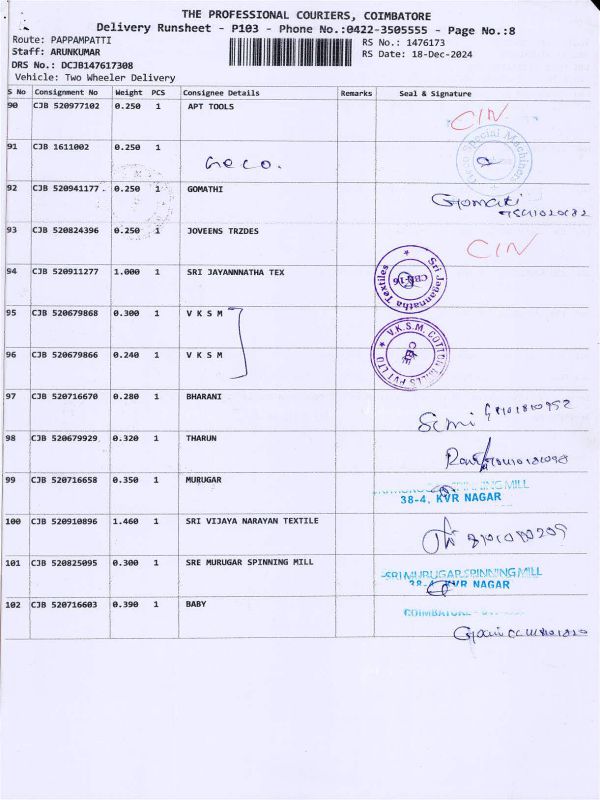 THE PROFESSIONAL COURIERS, COIMBATORE
Delivery Runsheet - P103 - Phone No.:0422-3505555 - Page No.:8
Route: PAPPAMPATTI
Staff: ARUNKUMAR
DRS No.: DCJB147617308
Vehicle: Two Wheeler Delivery
RS No.: 1476173
RS Date: 18-Dec-2024
S No Consignment No Weight PCS Consignee Details Remarks Seal & Signature
90 CJB 520977102 0.250 1 APT TOOLS CIN
91 CJB 1611002 0.250 1 Geco. Special Machines
92 CJB 520941177 0.250 1 GOMATHI Gomathi
93 CJB 520824396 0.250 1 JOVEENS TRZDES CIN
94 CJB 520911277 1.000 1 SRI JAYANNNATHA TEX Sri Jagannatha Textiles CBE-16
95 CJB 520679868 0.300 1 V K S M
96 CJB 520679866 0.240 1 V K S M V.K.S.M. COTTON MILLS PVT LTD CBE
97 CJB 520716670 0.280 1 BHARANI
98 CJB 520679929 0.320 1 THARUN
99 CJB 520716658 0.350 1 MURUGAR SPINNING MILL
38-4, KVR NAGAR
100 CJB 520910896 1.460 1 SRI VIJAYA NARAYAN TEXTILE
101 CJB 520825095 0.300 1 SRE MURUGAR SPINNING MILL SRI MURUGAR SPINNING MILL
38-4, KVR NAGAR
102 CJB 520716603 0.390 1 BABY COIMBATORE